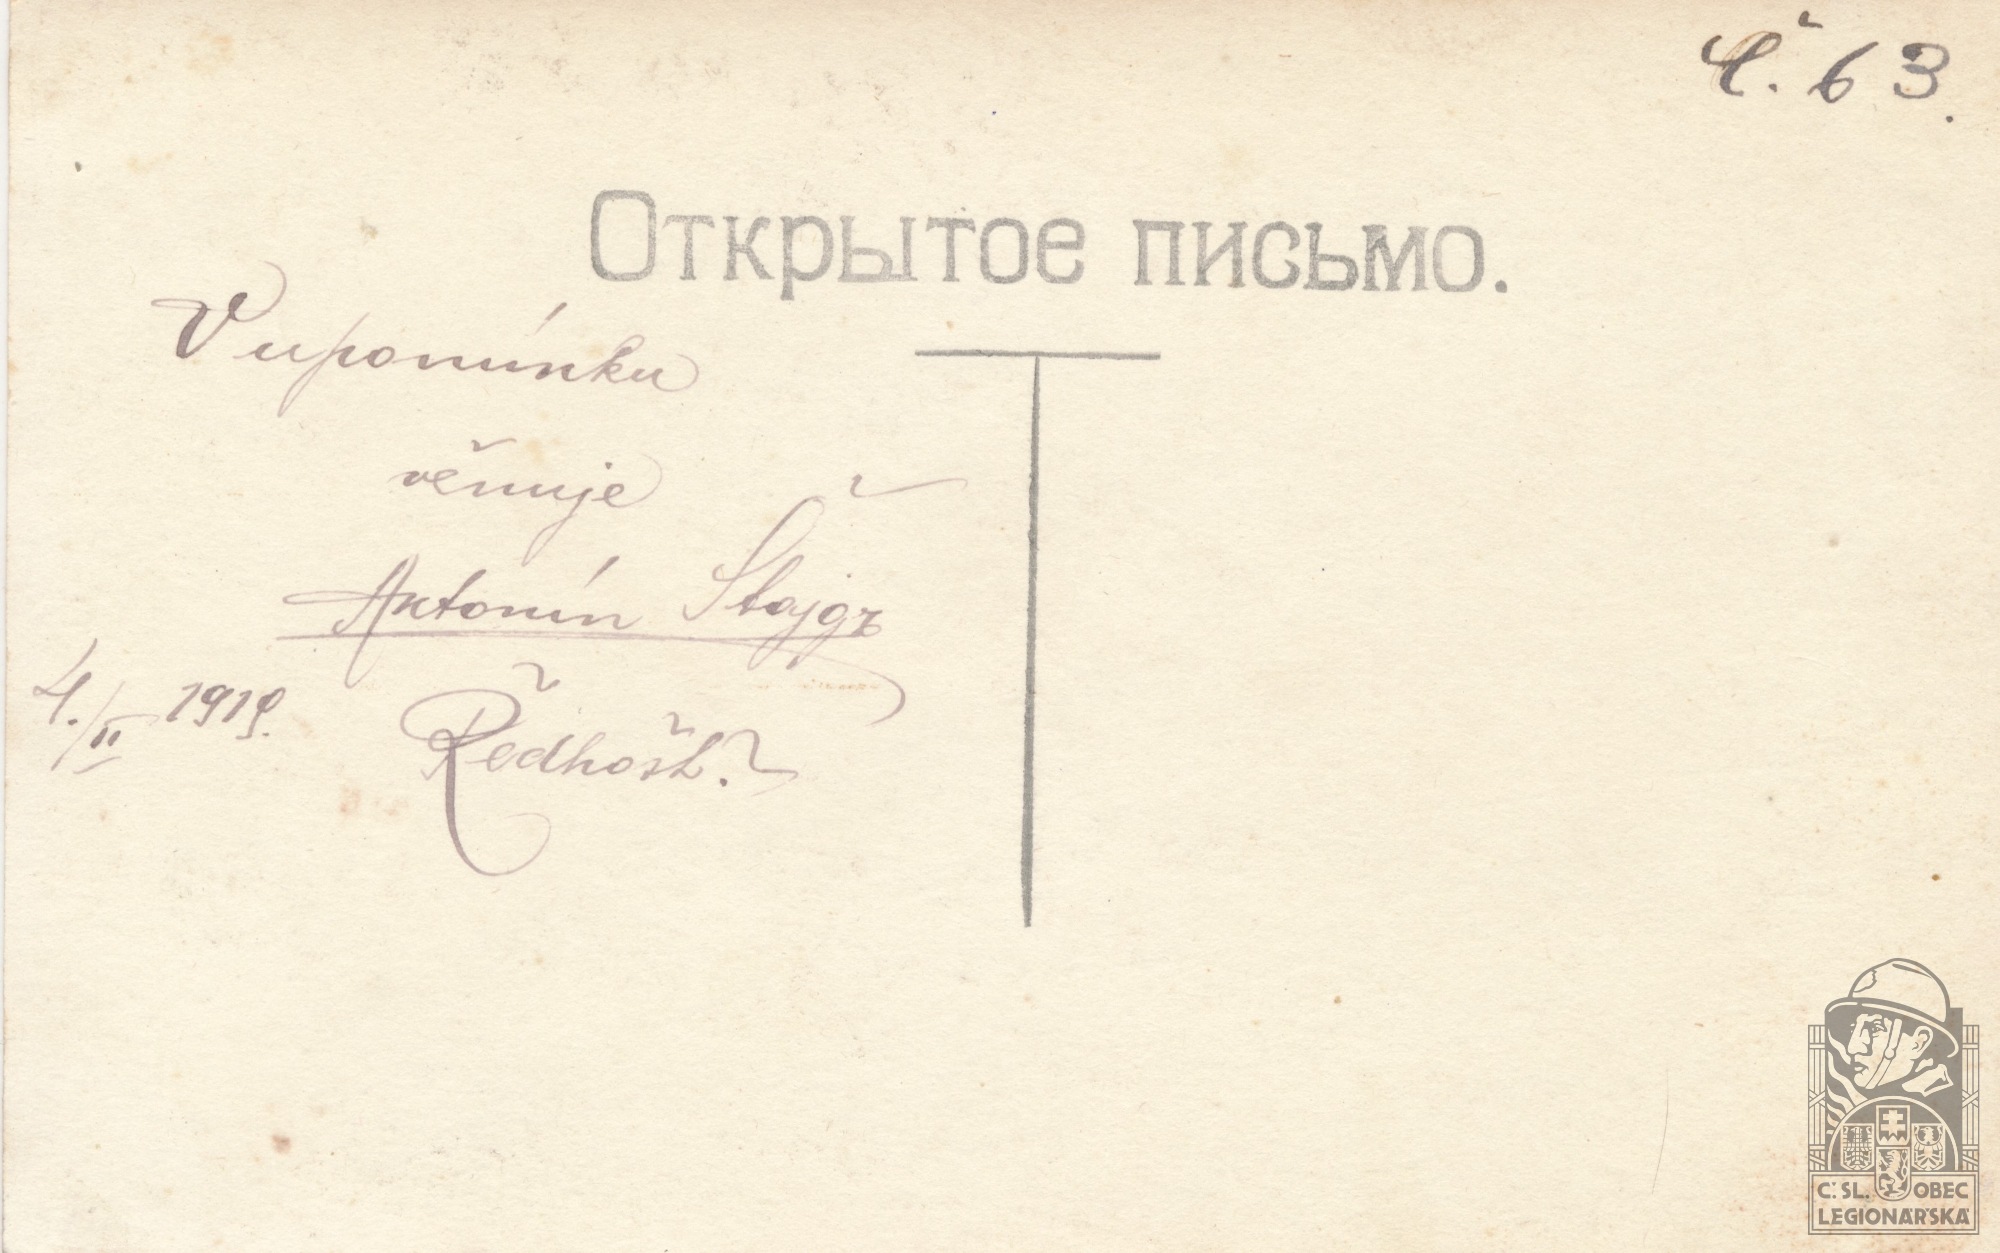 Č. 63.
Открытое письмо.
V upomínku
věnuje
Antonín Štajgr
4./II 1919.
Ředhošť.
Č. SL. OBEC
LEGIONÁŘSKÁ